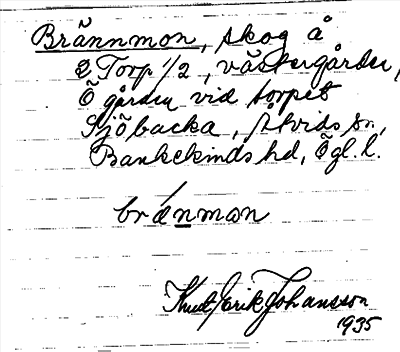 Brännmon, skog å
Torp 1/2, västergården,
Ö gården vid torpet
Sjöbacka, Åtvids sn,
Bankekinds hd, Ögl. l.
brænmon
Knut Erik Johansson
1935